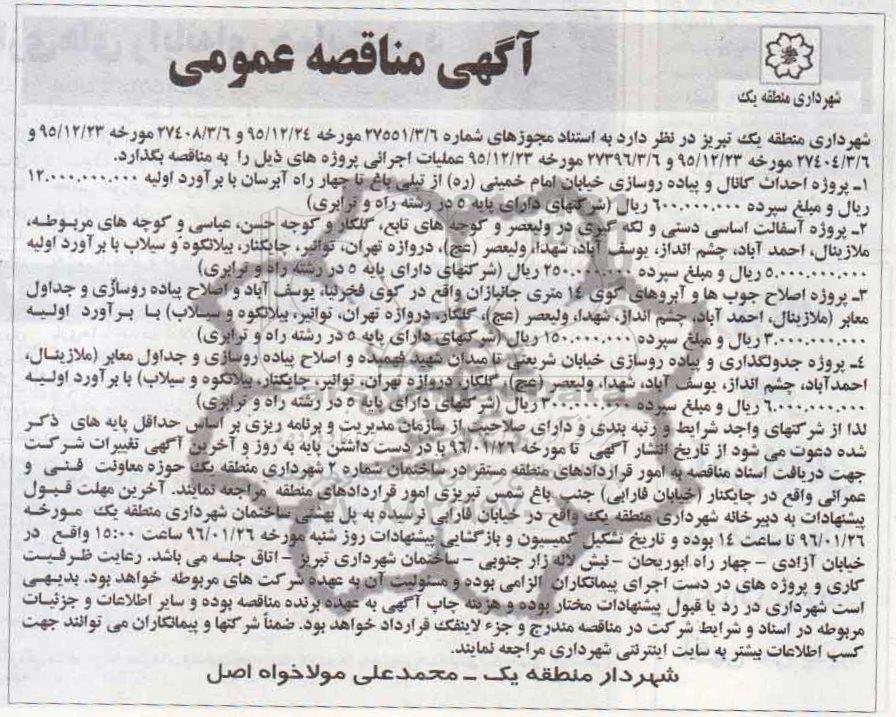 آگهی مناقصه عمومی
شهرداری منطقه یک
شهرداری منطقه یک تبریز در نظر دارد به استناد مجوزهای شماره ۲۷۵۵۱/۳/۶ مورخه ۹۵/۱۲/۲۴ و ۲۷۴۰۸/۳/۶ مورخه ۹۵/۱۲/۲۳ و
۲۷۴۰۴/۳/۶ مورخه ۹۵/۱۲/۲۳ و ۲۷۳۹۶/۳/۶ مورخه ۹۵/۱۲/۲۳ عملیات اجرائی پروژه های ذیل را به مناقصه بگذارد.
۱ـ پروژه احداث کانال و پیاده روسازی خیابان امام خمینی (ره) از تپلی باغ تا چهار راه آبرسان با برآورد اولیه ۱۲.۰۰۰.۰۰۰.۰۰۰
ریال و مبلغ سپرده ۶۰۰.۰۰۰.۰۰۰ ریال (شرکتهای دارای پایه ۵ در رشته راه و ترابری)
۲ـ پروژه آسفالت اساسی دستی و لکه گیری در ولیعصر و کوچه های تابع، گلکار و کوچه حسن، عباسی و کوچه های مربوطه،
ملازینال، احمد آباد، چشم انداز، یوسف آباد، شهدا، ولیعصر (عج)، دروازه تهران، توانیر، جایکنار، بیلانکوه و سیلاب با برآورد اولیه
۵.۰۰۰.۰۰۰.۰۰۰ ریال و مبلغ سپرده ۲۵۰.۰۰۰.۰۰۰ ریال (شرکتهای دارای پایه ۵ در رشته راه و ترابری)
۳ـ پروژه اصلاح جوب ها و آبروهای کوی ۱۴ متری جانبازان واقع در کوی فخرنیا، یوسف آباد و اصلاح پیاده روسازی و جداول
معابر (ملازینال، احمد آباد، چشم انداز، شهدا، ولیعصر (عج)، گلکار، دروازه تهران، توانیر، بیلانکوه و سیلاب) با برآورد اولیه
۳.۰۰۰.۰۰۰.۰۰۰ ریال و مبلغ سپرده ۱۵۰.۰۰۰.۰۰۰ ریال (شرکتهای دارای پایه ۵ در رشته راه و ترابری)
۴ـ پروژه جدولگذاری و پیاده روسازی خیابان شریعتی تا میدان شهید فهمیده و اصلاح پیاده روسازی و جداول معابر (ملازینال،
احمدآباد، چشم انداز، یوسف آباد، شهدا، ولیعصر (عج)، گلکار، دروازه تهران، توانیر، جایکنار، بیلانکوه و سیلاب) با برآورد اولیه
۶.۰۰۰.۰۰۰.۰۰۰ ریال و مبلغ سپرده ۳۰۰.۰۰۰.۰۰۰ ریال (شرکتهای دارای پایه ۵ در رشته راه و ترابری)
لذا از شرکتهای واجد شرایط و رتبه بندی و دارای صلاحیت از سازمان مدیریت و برنامه ریزی بر اساس حداقل پایه های ذکر
شده دعوت می شود از تاریخ انتشار آگهی تا مورخه ۹۶/۰۱/۲۶ با در دست داشتن پایه به روز و آخرین آگهی تغییرات شرکت
جهت دریافت اسناد مناقصه به امور قراردادهای منطقه مستقر در ساختمان شماره ۲ شهرداری منطقه یک حوزه معاونت فنی و
عمرانی واقع در جایکنار (خیابان فارابی) جنب باغ شمس تبریزی امور قراردادهای منطقه مراجعه نمایند. آخرین مهلت قبول
پیشنهادات به دبیرخانه شهرداری منطقه یک واقع در خیابان فارابی نرسیده به پل بهشتی ساختمان شهرداری منطقه یک مورخه
۹۶/۰۱/۲۶ تا ساعت ۱۴ بوده و تاریخ تشکیل کمیسیون و بازگشایی پیشنهادات روز شنبه مورخه ۹۶/۰۱/۲۶ ساعت ۱۵:۰۰ واقع در
خیابان آزادی - چهار راه ابوریحان - نبش لاله زار جنوبی - ساختمان شهرداری تبریز - اتاق جلسه می باشد. رعایت ظرفیت
کاری و پروژه های در دست اجرای پیمانکاران الزامی بوده و مسئولیت آن به عهده شرکت های مربوطه خواهد بود. بدیهی
است شهرداری در رد یا قبول پیشنهادات مختار بوده و هزینه چاپ آگهی به عهده برنده مناقصه بوده و سایر اطلاعات و جزئیات
مربوطه در اسناد و شرایط شرکت در مناقصه مندرج و جزء لاینفک قرارداد خواهد بود. ضمناً شرکتها و پیمانکاران می توانند جهت
کسب اطلاعات بیشتر به سایت اینترنتی شهرداری مراجعه نمایند.
شهردار منطقه یک ـ محمدعلی مولاخواه اصل